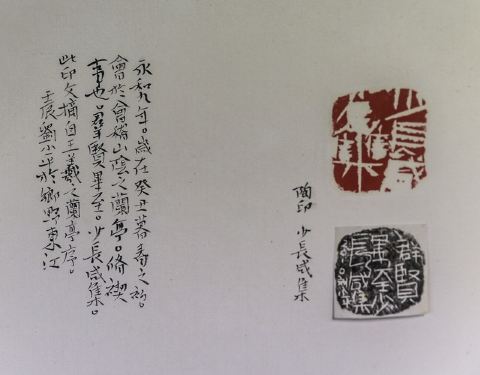 少長咸
集
群賢
畢至少
長咸集
印 少長咸集
永和九年。歲在癸丑暮春之初。
會於會稽山陰之蘭亭。脩禊
事也。羣賢畢至。少長咸集。
此印文摘自王羲之蘭亭序。
壬辰劉小平於鄉野東江